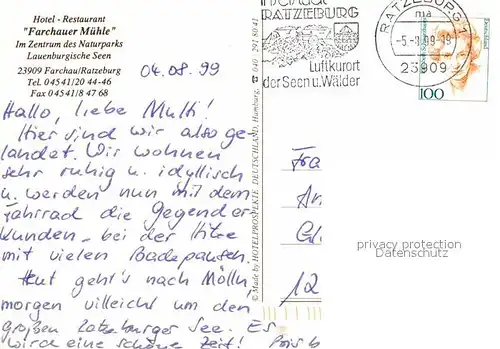 Hotel - Restaurant
"Farchauer Mühle"
Im Zentrum des Naturparks
Lauenburgische Seen
23909 Farchau/Ratzeburg
Tel. 04541/20 44-46
Fax 04541/8 47 68
04.08.99
Hallo, liebe Mutti!
Hier sind wir also ge-
landet. Wir wohnen
sehr ruhig u. idyllisch
u. werden nun mit dem
Fahrrad die Gegend er-
kunden - bei der Hitze
mit vielen Badepausen.
Heut geht's nach Mölln,
morgen villeicht um den
großen Ratzeburger See. Es
wird eine schöne Zeit! Bis
© Made by HOTELPROSPEKTE DEUTSCHLAND, Hamburg, ☎ 040 / 291 80 41
RATZEBURG
Luftkurort
der Seen u. Wälder
RATZEBURG 1
ma
-5.-8.99-19
23909
100
Fra
12
privacy protection
Datenschutz